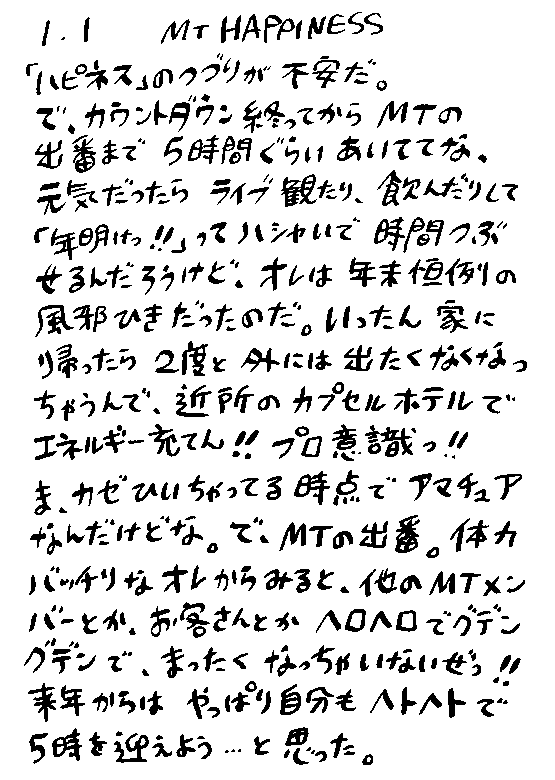 1.1 MT HAPPINESS
「ハピネス」のつづりが不安だ。
で、カウントダウン終ってから MTの
出番まで 5時間ぐらい あいててな、
元気だったら ライブ観たり、飲んだりして
「年明けっ!!」ってハシャいで 時間つぶ
せるんだろうけど、オレは 年末恒例の
風邪ひきだったのだ。いったん 家に
帰ったら 2度と 外には 出たくなくなっ
ちゃうんで、近所の カプセルホテルで
エネルギー充てん!! プロ意識っ!!
ま、カゼひいちゃってる 時点で アマチュア
なんだけどな。で、MTの出番。体力
バッチリな オレからみると、他のMTメン
バーとか、お客さんとか ヘロヘロでグデン
グデンで、まったく なっちゃいないぜっ!!
来年からは やっぱり 自分も ヘトヘトで
5時を迎えよう…と 思った。